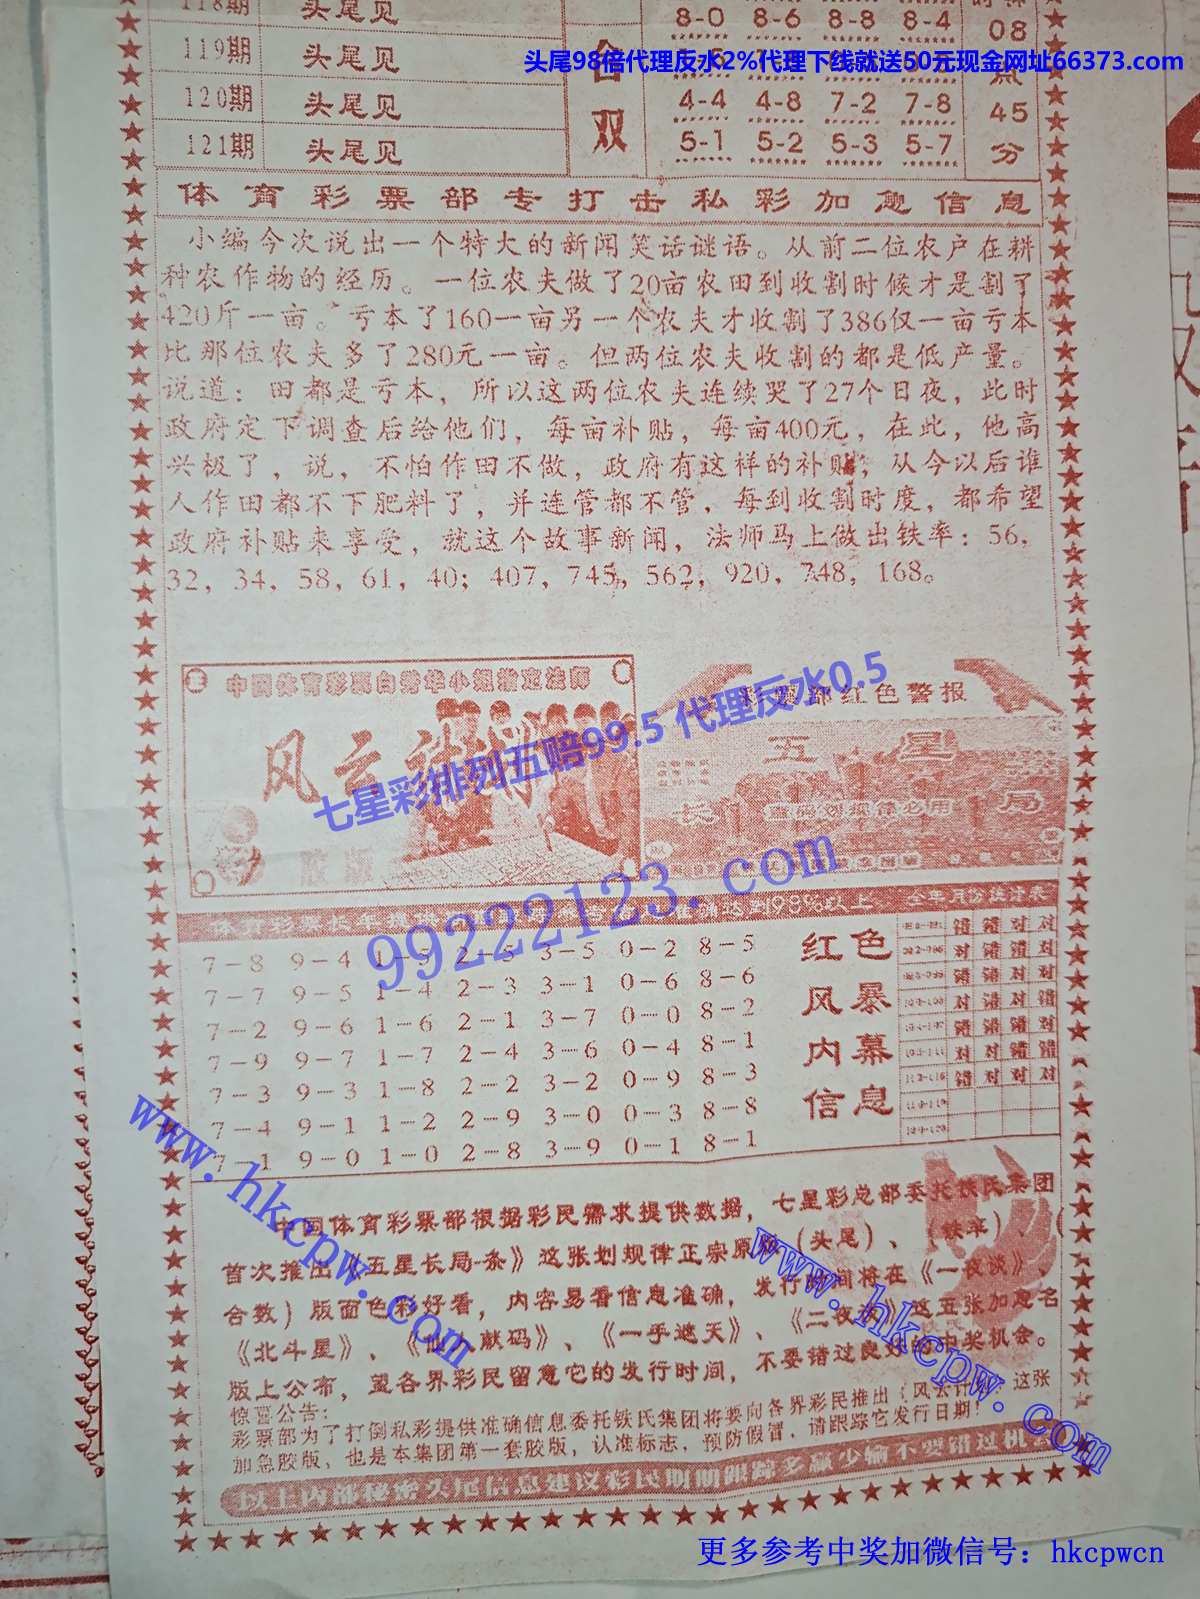 118期 头尾见
8-0 8-6 8-8 8-4
119期 头尾见
合
08
头尾98倍代理反水2%代理下线就送50元现金网址66373.com
点
120期 头尾见
4-4 4-8 7-2 7-8
45
双
121期 头尾见
5-1 5-2 5-3 5-7
分
体育彩票部专打击私彩加急信息
小编今次说出一个特大的新闻笑话谜语。从前二位农户在耕
种农作物的经历。一位农夫做了20亩农田到收割时候才是割了
420斤一亩。亏本了160一亩另一个农夫才收割了386仅一亩亏本
比那位农夫多了280元一亩。但两位农夫收割的都是低产量。
说道：田都是亏本，所以这两位农夫连续哭了27个日夜，此时
政府定下调查后给他们，每亩补贴，每亩400元，在此，他高
兴极了，说，不怕作田不做，政府有这样的补贴，从今以后谁
人作田都不下肥料了，并连管都不管，每到收割时度，都希望
政府补贴来享受，就这个故事新闻，法师马上做出铁率：56，
32，34，58，61，40；407，745，562，920，748，168。
中国体育彩票白秀华小姐指定法师
彩票部红色警报
七星彩排列五赔99.5 代理反水0.5
五星
长
局
99222123.com
全年月份统计表
7-8 9-4 1-5 2-5 3-5 0-2 8-5
7-7 9-5 1-4 2-3 3-1 0-6 8-6
7-2 9-6 1-6 2-1 3-7 0-0 8-2
7-9 9-7 1-7 2-4 3-6 0-4 8-1
7-3 9-3 1-8 2-2 3-2 0-9 8-3
7-4 9-1 1-2 2-9 3-0 0-3 8-8
7-1 9-0 1-0 2-8 3-9 0-1 8-1
红色
风暴
内幕
信息
错 错 对 对
对 错 错 对
错 错 对 对
对 错 对 错
错 错 错 对
对 对 错 错
错 对 对 对
www.hkcpw.com
中国体育彩票部根据彩民需求提供数据，七星彩总部委托铁氏集团
首次推出《五星长局-条》这张划规律正宗原版（头尾）、（铁率）、（
合数）版面色彩好看，内容易看信息准确，发行时间将在《一夜谈》、
《北斗星》、《仙人献码》、《一手遮天》、《二夜谈》这五张加急名
版上公布，望各界彩民留意它的发行时间，不要错过良好的中奖机会。
www.hkcpw.com
惊喜公告：
彩票部为了打倒私彩提供准确信息委托铁氏集团将要向各界彩民推出（风云计）这张
加急胶版，也是本集团第一套胶版，认准标志，预防假冒，请跟踪它发行日期！
以上内部秘密头尾信息建议彩民期期跟踪多赢少输不要错过机会
更多参考中奖加微信号：hkcpwcn